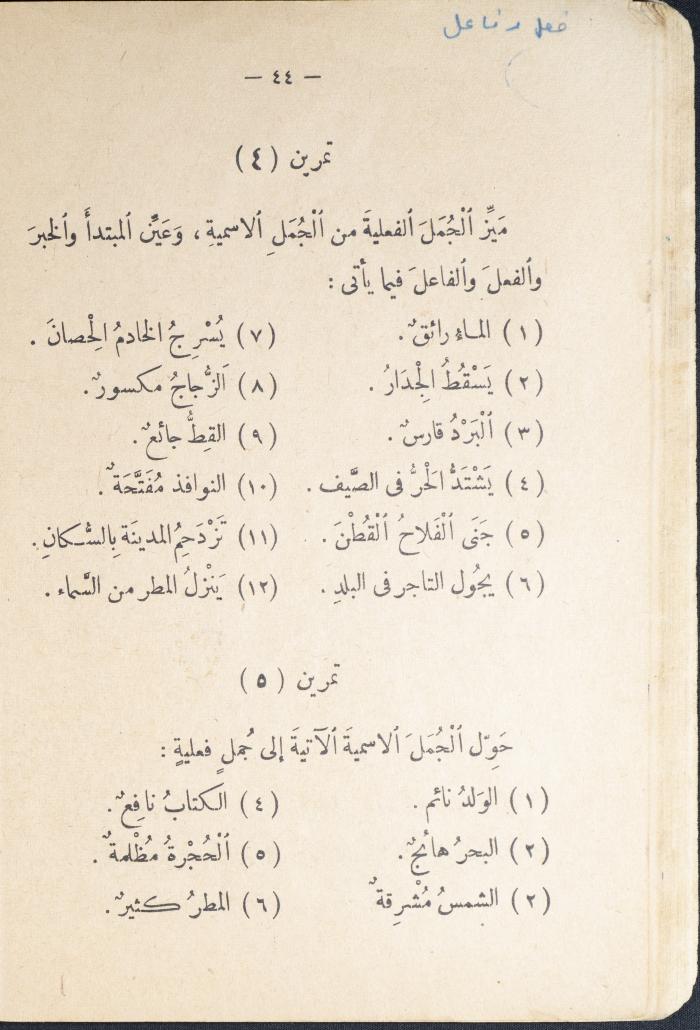 فعل و فاعل
— ٤٤ —
تمرين (٤)
مَيِّز ٱلْجُمَلَ ٱلفعليةَ من ٱلْجُمَلِ ٱلاسميةِ، وَعَيِّن ٱلمبتدأَ وٱلخبرَ
وٱلفعلَ وٱلفاعلَ فيما يأتى :
(١) الماء رائقٌ.
(٢) يَسْقُطُ الْجِدَارُ.
(٣) ٱلْبَرْدُ قارسٌ.
(٤) يَشْتَدُّ الْحَرُّ فى الصَّيف.
(٥) جَنَى ٱلْفَلاحُ ٱلْقُطْنَ.
(٦) يجُول التاجر فى البلدِ.
(٧) يُسْرِجُ الخادمُ الْحِصانَ.
(٨) اَلزُّجاجُ مكسورٌ.
(٩) القِطُّ جائعٌ.
(١٠) النوافذ مُفَتَّحَةٌ.
(١١) تَزْدَحِمُ المدينَة بِالسُّكانِ.
(١٢) يَنْزلُ المطر من السَّماء.
تمرين (٥)
حَوِّل ٱلْجُمَلَ ٱلاسميةَ ٱلآتيةَ إلى جُملٍ فعليةٍ :
(١) الوَلدُ نائم.
(٢) البحرُ هائجٌ.
(٢) الشمسُ مُشْرِقةٌ
(٤) الكتابُ نافِعٌ.
(٥) ٱلْحُجْرةُ مُظْلمةٌ.
(٦) المطرُ كثيرٌ.